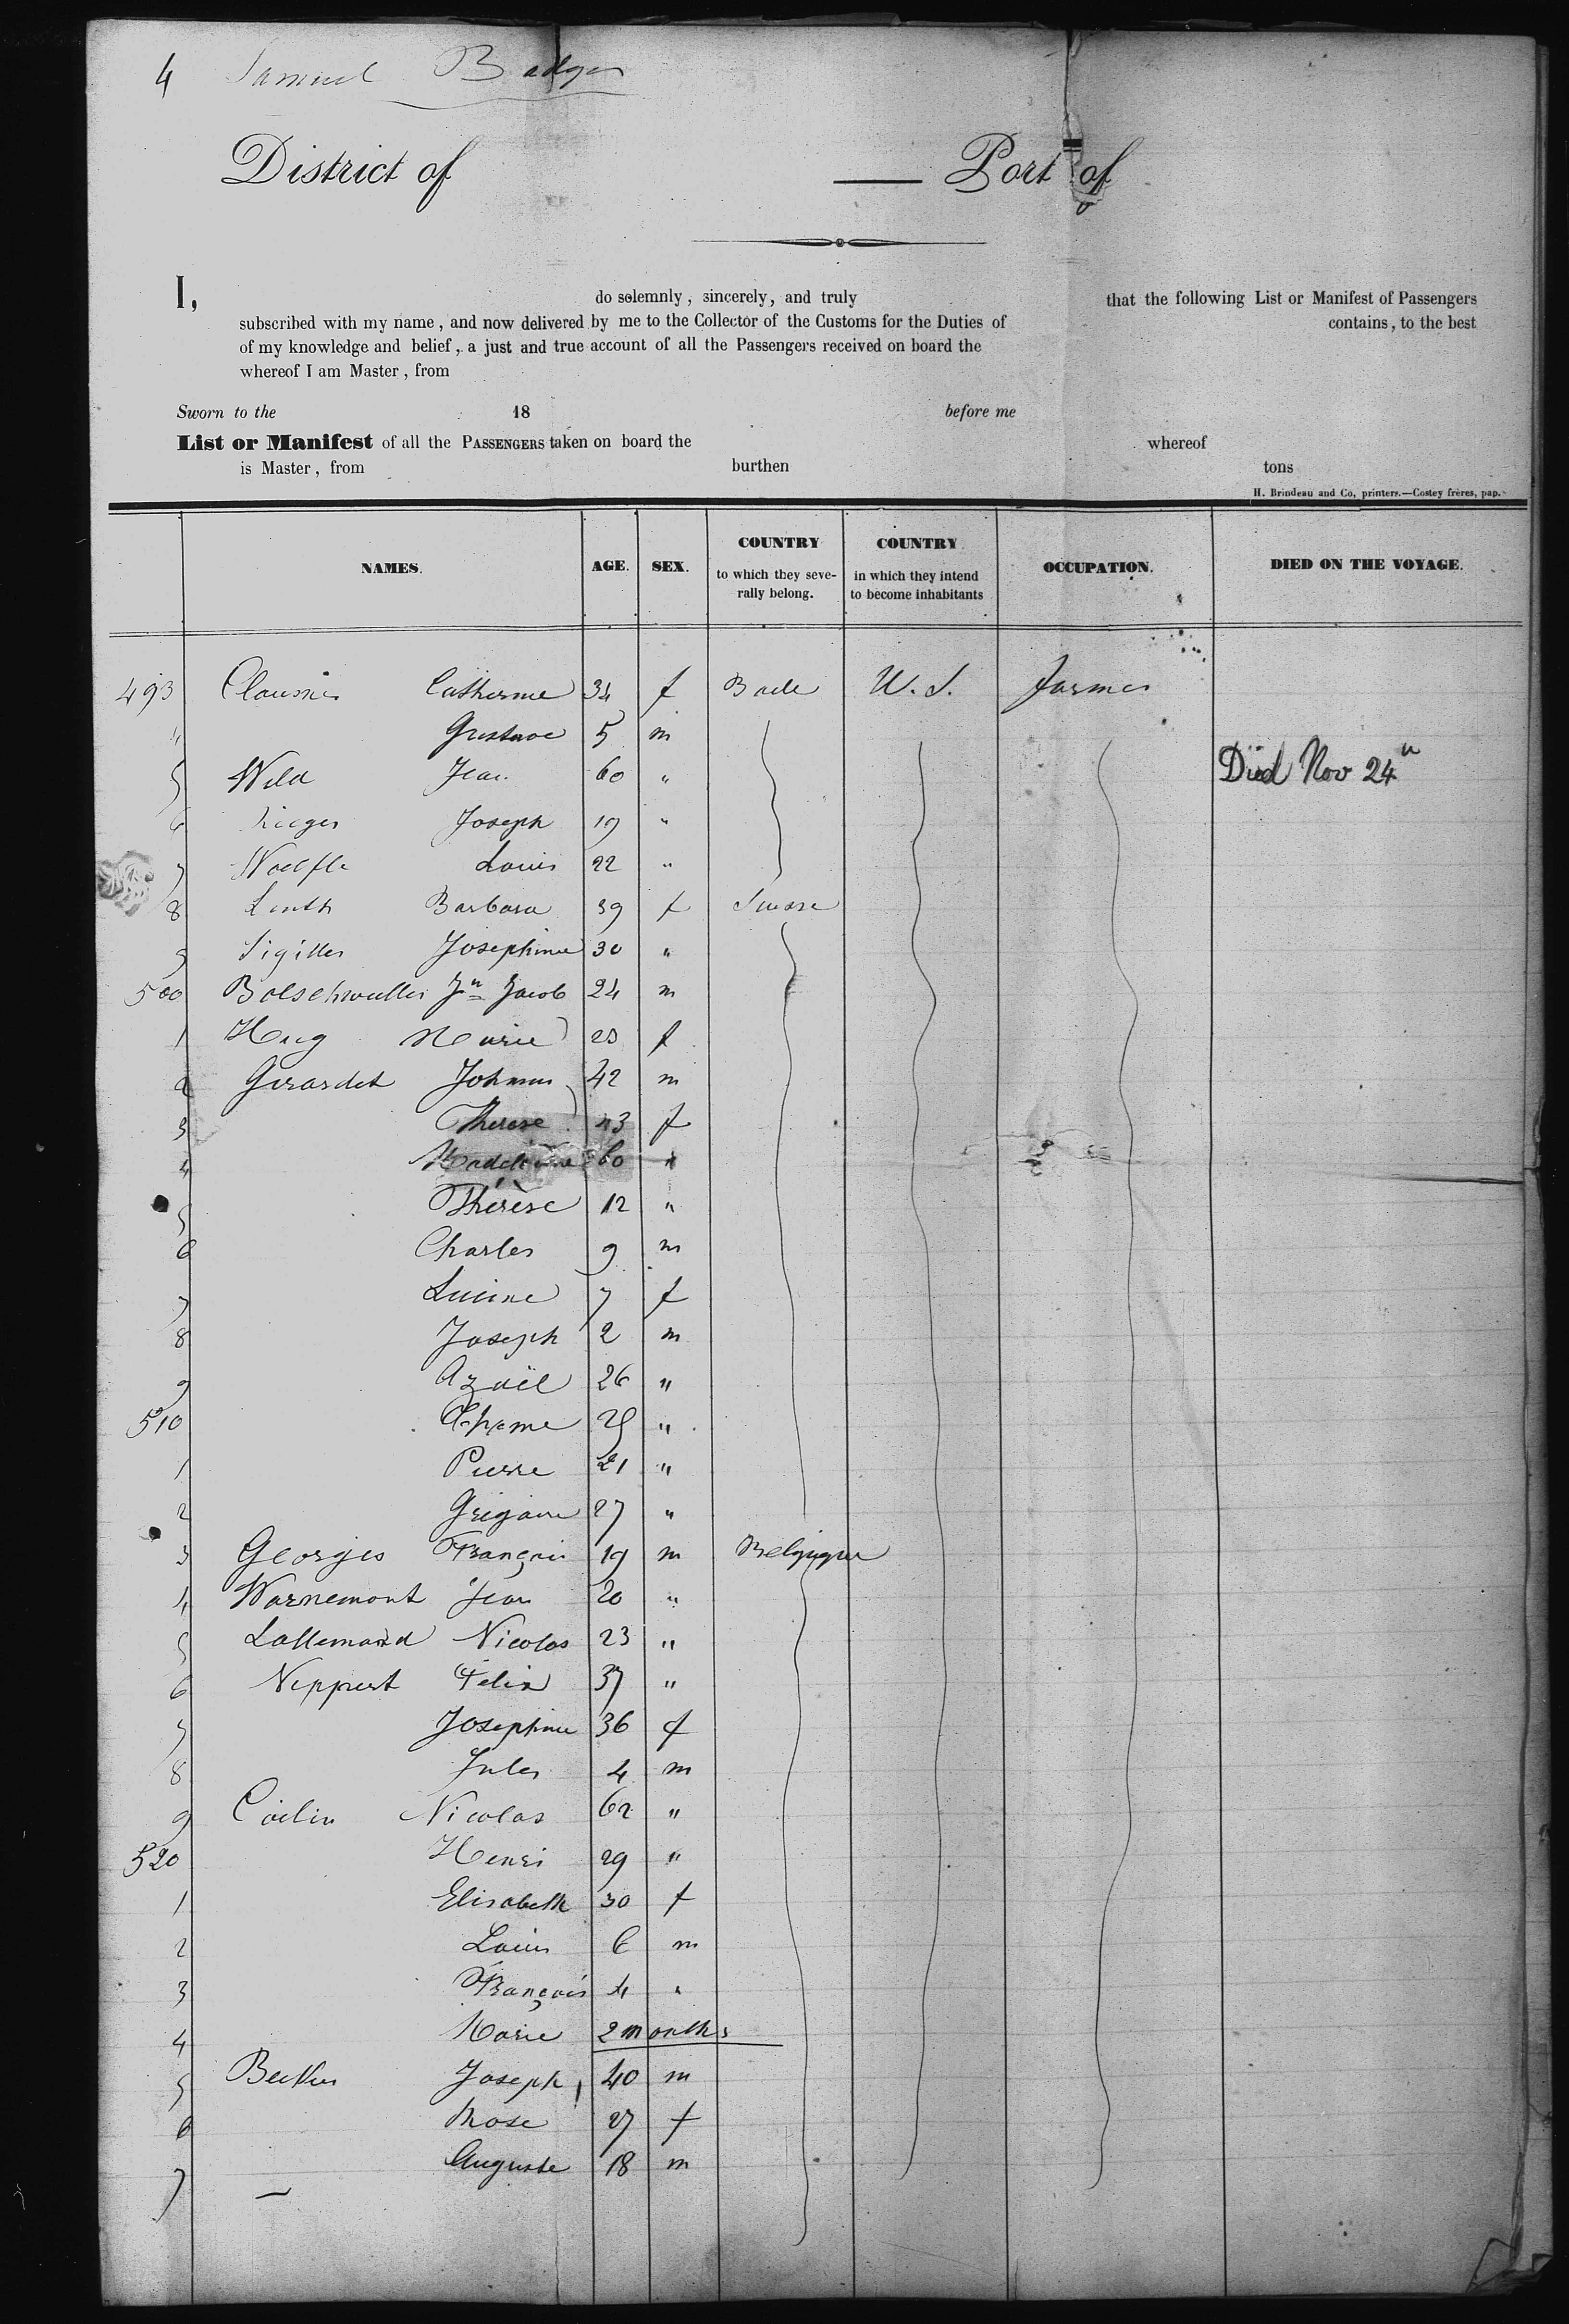 4 Samuel Badger
District of — Port of
I, do solemnly, sincerely, and truly that the following List or Manifest of Passengers
subscribed with my name, and now delivered by me to the Collector of the Customs for the Duties of contains, to the best
of my knowledge and belief, a just and true account of all the Passengers received on board the
whereof I am Master, from
Sworn to the 18 before me
List or Manifest of all the PASSENGERS taken on board the whereof
is Master, from burthen tons
H. Brindeau and Co, printers.—Costey frères, pap.
NAMES. AGE. SEX. COUNTRY to which they seve-rally belong. COUNTRY in which they intend to become inhabitants OCCUPATION. DIED ON THE VOYAGE.
493 Catherine 34 f Bade U.S. Farmer
4 Gustave 5 m
5 Wild Jean 60 " Died Nov 24
6 Joseph 19 "
7 Woelfle Louis 22 "
8 Linth Barbara 39 f Suisse
9 Josephine 30 "
500 Jn Jacob 24 m
1 Hug Marie f
2 Girardet 42 m
3 Therese 43 f
4 Madeleine 60 "
5 Thérèse 12 "
6 Charles 9 m
7 7 f
8 Joseph 2 m
9 Azaël 26 "
510 "
1 Pierre 21 "
2 Grégoire 27 "
3 Georges François 19 m Belgique
4 Warnemont Jean 20 "
5 Lallemand Nicolas 23 "
6 Neppert Félix 37 "
7 Josephine 36 f
8 Jules 4 m
9 Nicolas 62 "
520 Henri 29 "
1 Elisabeth 30 f
2 Louis 6 m
3 François 4 "
4 Marie 2 months
5 Joseph 40 m
6 Rose 27 f
7 — Auguste 18 m